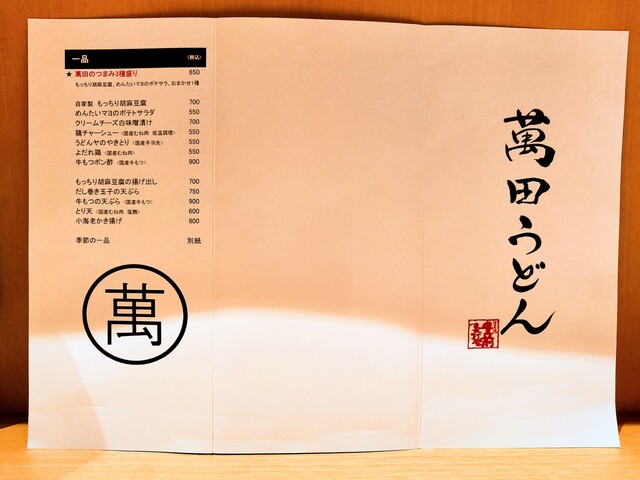 一品 (税込)
★ 萬田のつまみ3種盛り 650
もっちり胡麻豆腐、めんたいマヨのポテサラ、おまかせ1種
自家製 もっちり胡麻豆腐 700
めんたいマヨのポテトサラダ 550
クリームチーズ白味噌漬け 700
鶏チャーシュー <国産むね肉 低温調理> 550
うどんヤのやきとり <国産手羽先> 550
よだれ鶏 <国産むね肉> 550
牛もつポン酢 <国産牛もつ> 900
もっちり胡麻豆腐の揚げ出し 700
だし巻き玉子の天ぷら 750
牛もつの天ぷら <国産牛もつ> 900
とり天 <国産むね肉 塩麹> 600
小海老かき揚げ 800
季節の一品 別紙
萬
萬田うどん